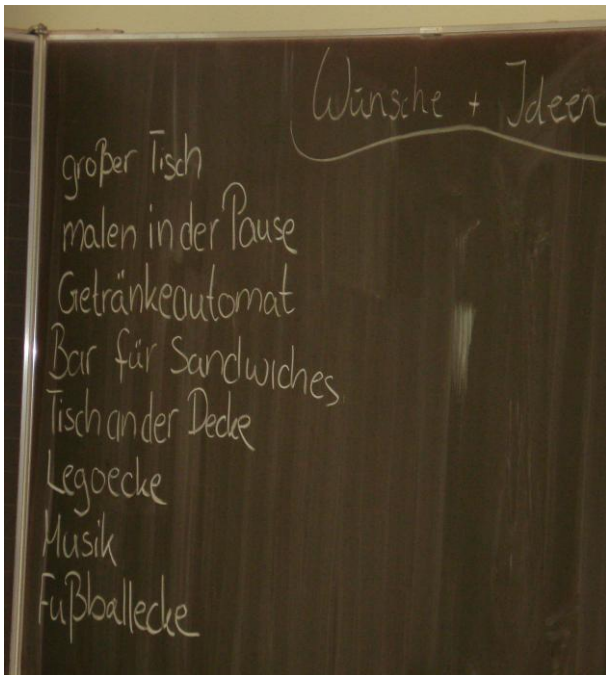 Wünsche + Ideen
großer Tisch
malen in der Pause
Getränkeautomat
Bar für Sandwiches
Tisch an der Decke
Legoecke
Musik
Fußballecke